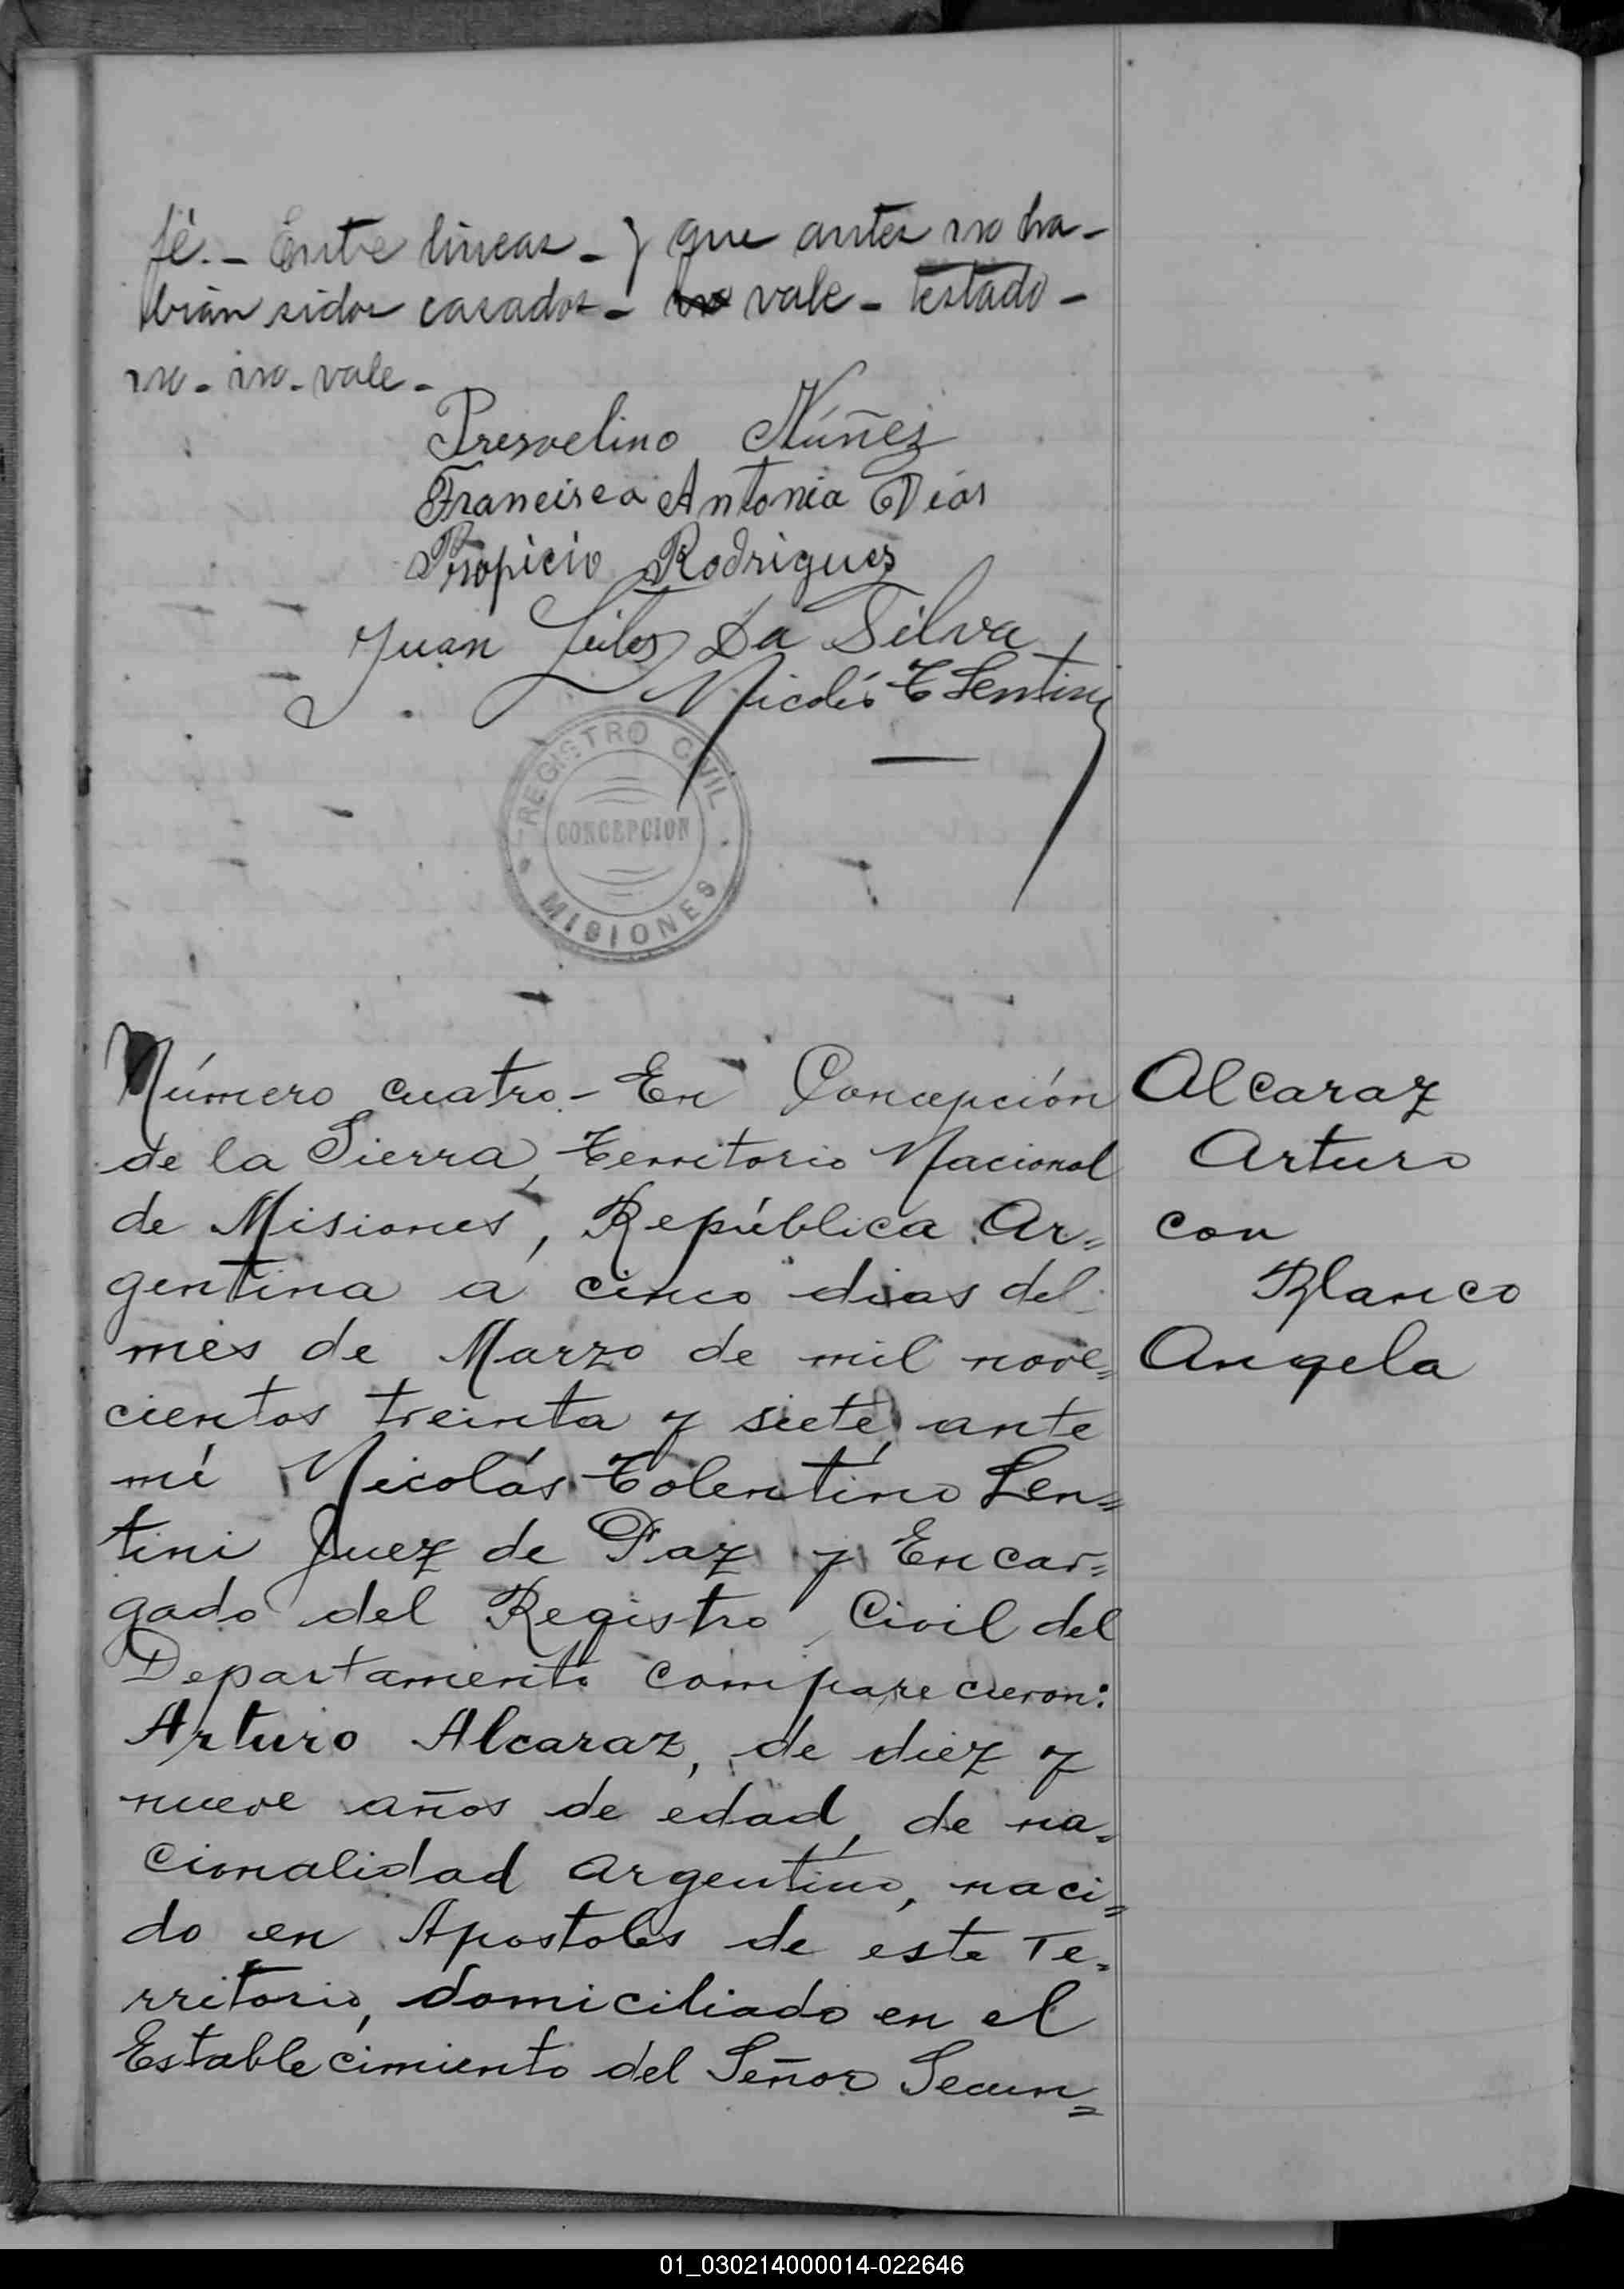 fé.- Entre lineas - y que antes no ha-
bian sidos casados - vale - testado -
no - no - vale -
Presvelino Núñez
Francisca Antonia Dias
Propicio Rodrigues
Juan Da Silva
Nicolás T Lentini
REGISTRO CIVIL
CONCEPCION
MISIONES
Número cuatro.- En Concepción
de la Sierra, Territorio Nacional
de Misiones, República Ar=
gentina a cinco dias del
mes de Marzo de mil nove=
cientos treinta y siete, ante
mí Nicolás Tolentino Len=
tini Juez de Paz y Encar=
gado del Registro Civil del
Departamento comparecieron:
Arturo Alcaraz, de diez y
nueve años de edad, de na=
cionalidad argentino, naci=
do en Apostoles de este Te=
rritorio, domiciliado en el
Establecimiento del Señor Secun=
Alcaraz
Arturo
con
Blanco
Angela
01_030214000014-022646